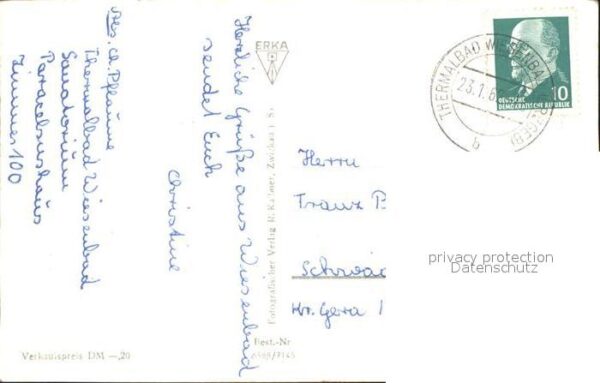 Abs. Ch. Pflaume
Thermalbad Wiesenbad
Sanatorium
Paracelsushaus
Zimmer 100
Herzliche Grüße aus Wiesenbad
sendet Euch
Christine
ERKA
Fotografischer Verlag R. Kallmer, Zwickau i. Sa.
Best.-Nr
Verkaufspreis DM —,20
THERMALBAD WIESENBAD
23.1.6
b
10
DEUTSCHE
DEMOKRATISCHE REPUBLIK
Herrn
Franz
Kr. Gera
privacy protection
Datenschutz